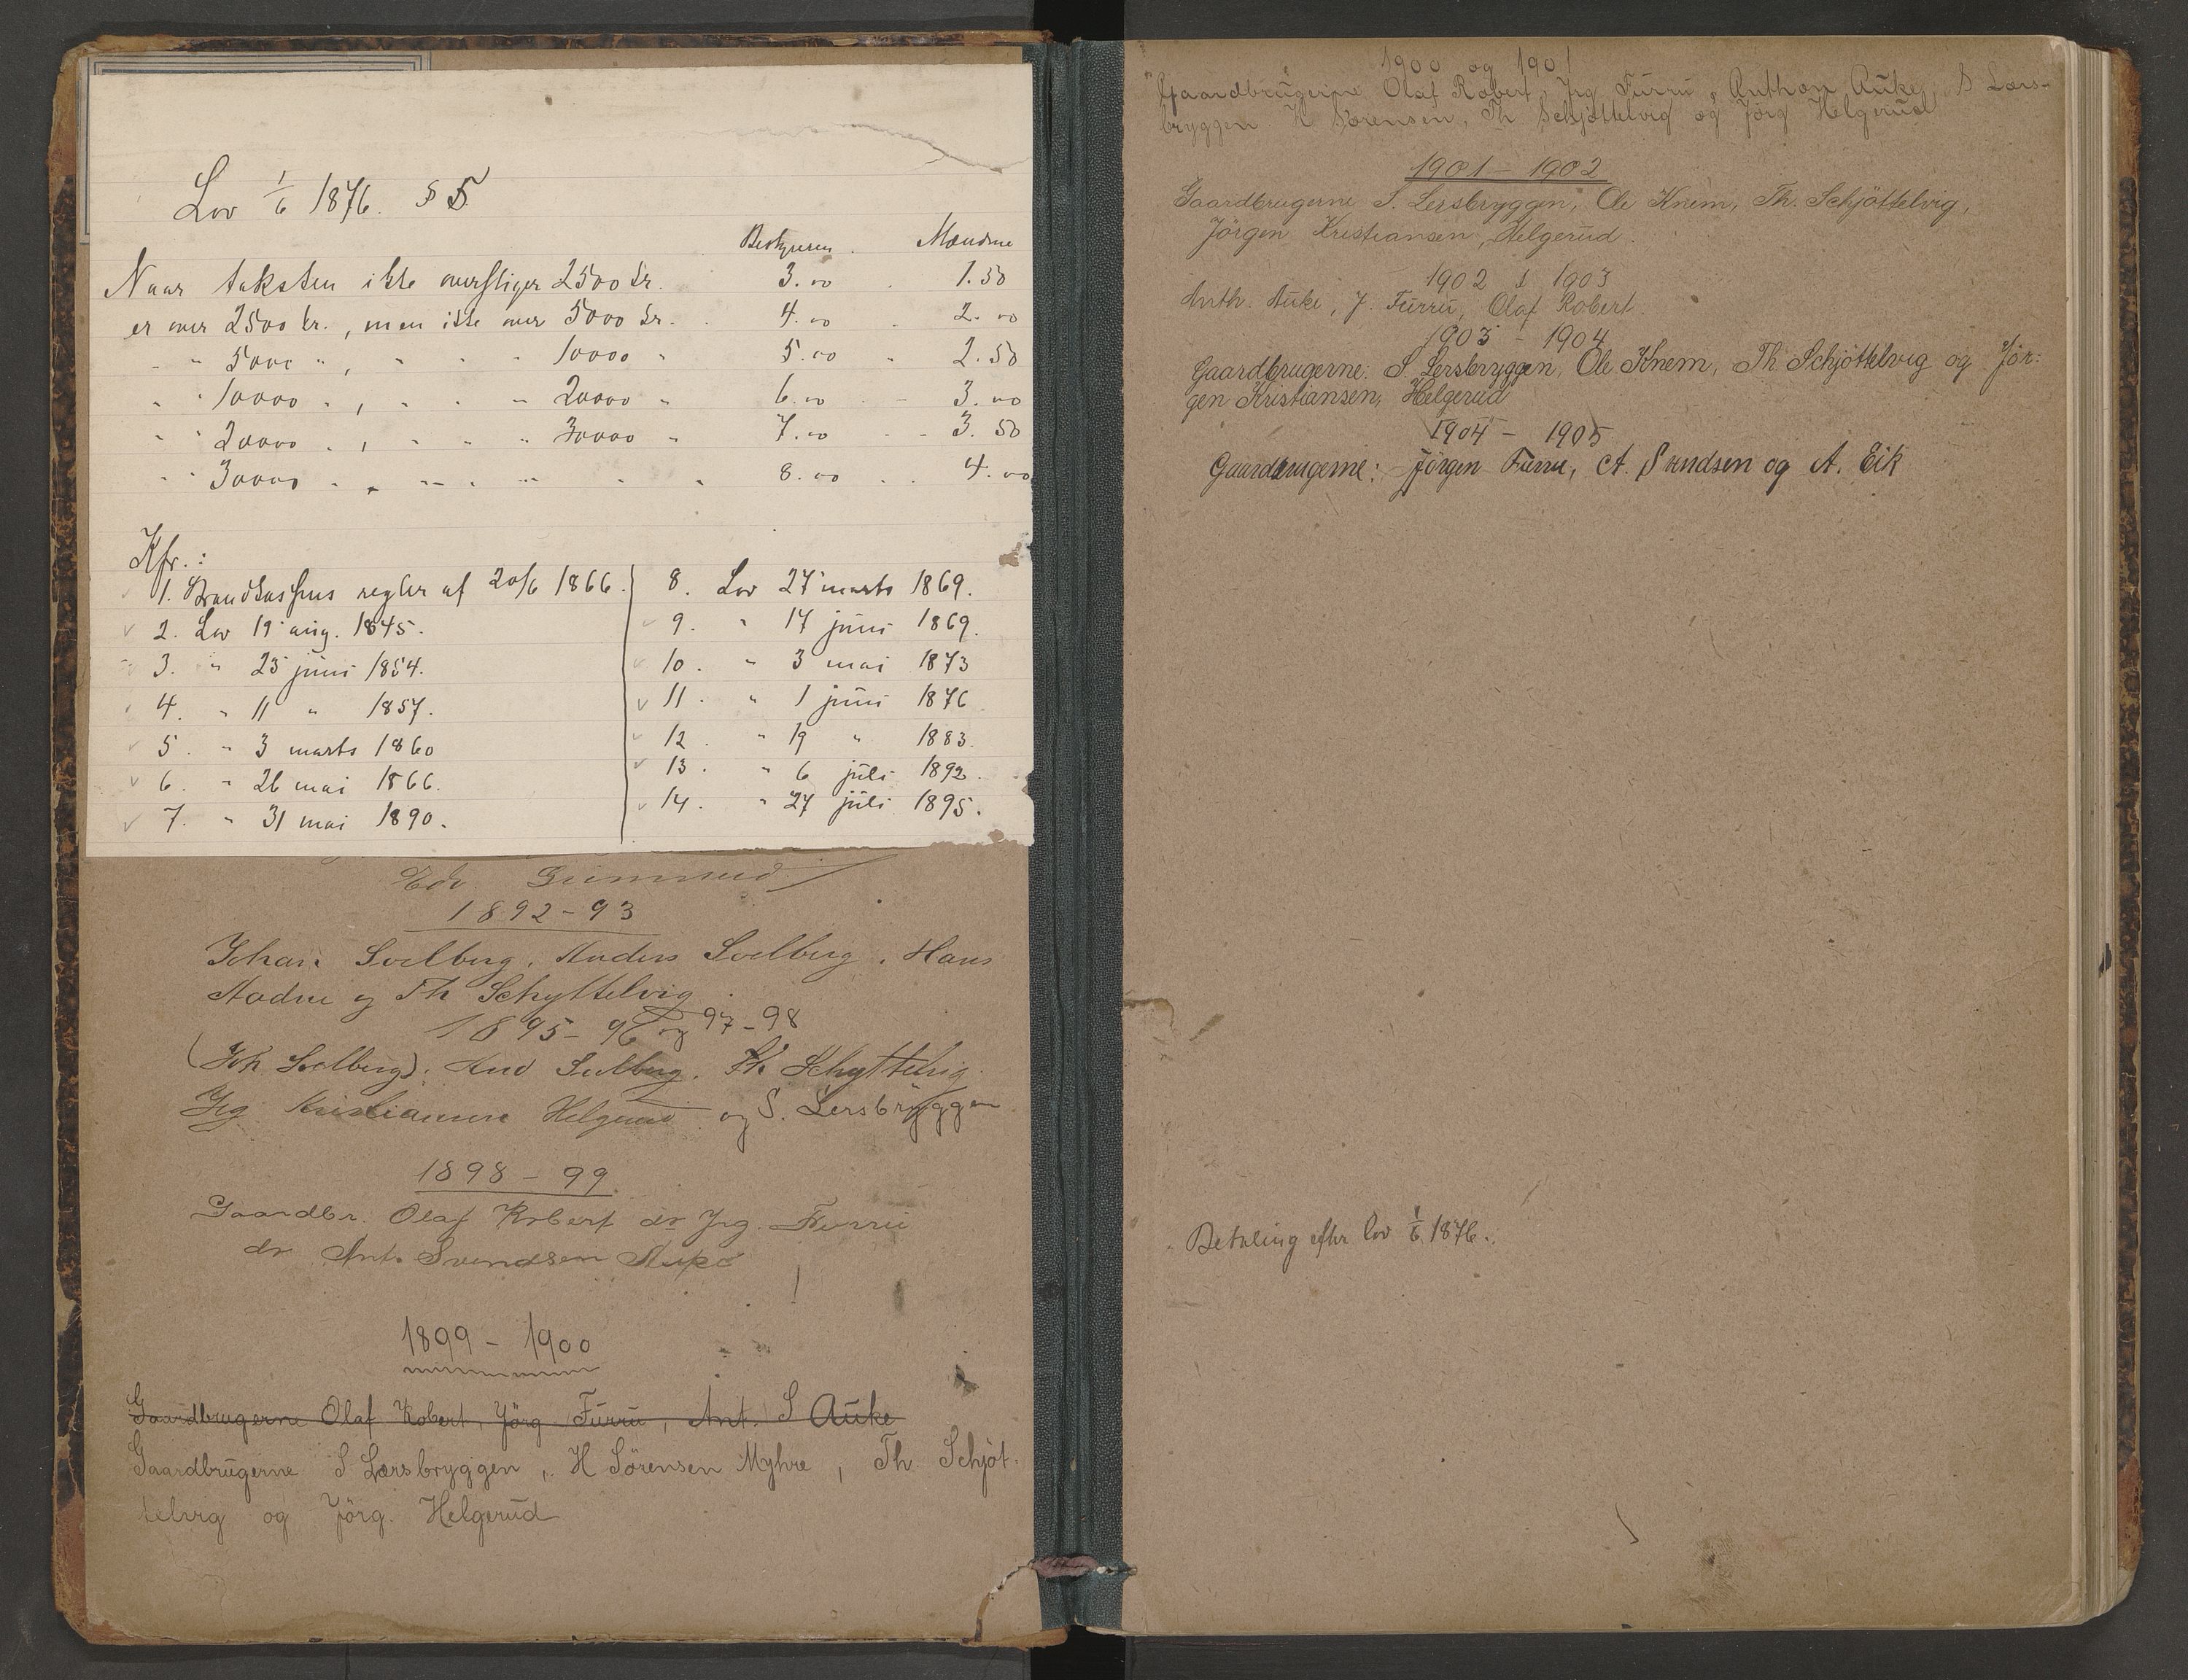 Lov 1/6 1876. § 5
Bestyreren. Mændene
Naar taksten ikke overstiger 2500 kr. 3.00 . 1.50
er over 2500 kr., men ikke over 5000 kr. . 4.00 . 2.00
- " 5000 " , " " " 10000 " 5.00 " 2.50
" " 10000 " , " " " 20000 " 6.00 - 3.00
" " 20000 " , " " " 30000 " 7.00 - 3.50
" " 30000 " " " " " " 8.00 . . 4.00
Kfr.:
1. Brandkassens regler af 20/6 1866.
2. Lov 19 aug. 1845.
3. " 23 juni 1854.
4. " 11 " 1857.
5. " 3 marts 1860
6. " 26 mai 1866.
7. " 31 mai 1890.
8. Lov 27 marts 1869.
9. " 17 juni 1869.
10. " 3 mai 1873
11. " 1 juni 1876
12. " 19 " 1883.
13. " 6 juli 1892.
14. " 27 juli 1895.
Edv.
1892-93
Johan Solberg, Anders Solberg, Hans
og Th Schyttelvig
1895-96 og 97-98
(Joh Solberg), And Solberg, Th Schyttelvig
Jrg Kristiansen Helgerud og S. Lersbryggen
1898-99.
Gaardbr. Olaf Robert do Jrg. Furru
do Ant. Svendsen Auke
1899-1900
Gaardbrugerne Olaf Robert, Jörg Furru, Ant. S Auke
Gaardbrugerne S Lærsbryggen, H Sörensen Myhre, Th. Schjöt-
telvig og Jörg. Helgerud
1900 og 1901
Gaardbrugerne Olaf Robert, Jrg Furru, Anthon Auke, S Lærs-
bryggen H Sørensen, Th Schjøttelvig og Jörg Helgerud
1901-1902
Gaardbrugerne S. Lersbryggen, Ole Knem, Th. Schjöttelvig,
Jörgen Kristiansen, Helgerud.
1902 1903
Anth. Auke, J. Furru, Olaf Robert.
1903 - 1904
Gaardbrugerne: S. Lersbryggen, Ole Knem, Th Schjöttelvig og Jör-
gen Kristiansen, Helgerud
1904 - 1905
Gaardbrugerne: Jörgen Furru, A. Svendsen og A. Eik
Betaling efter lov 1/6 1876.